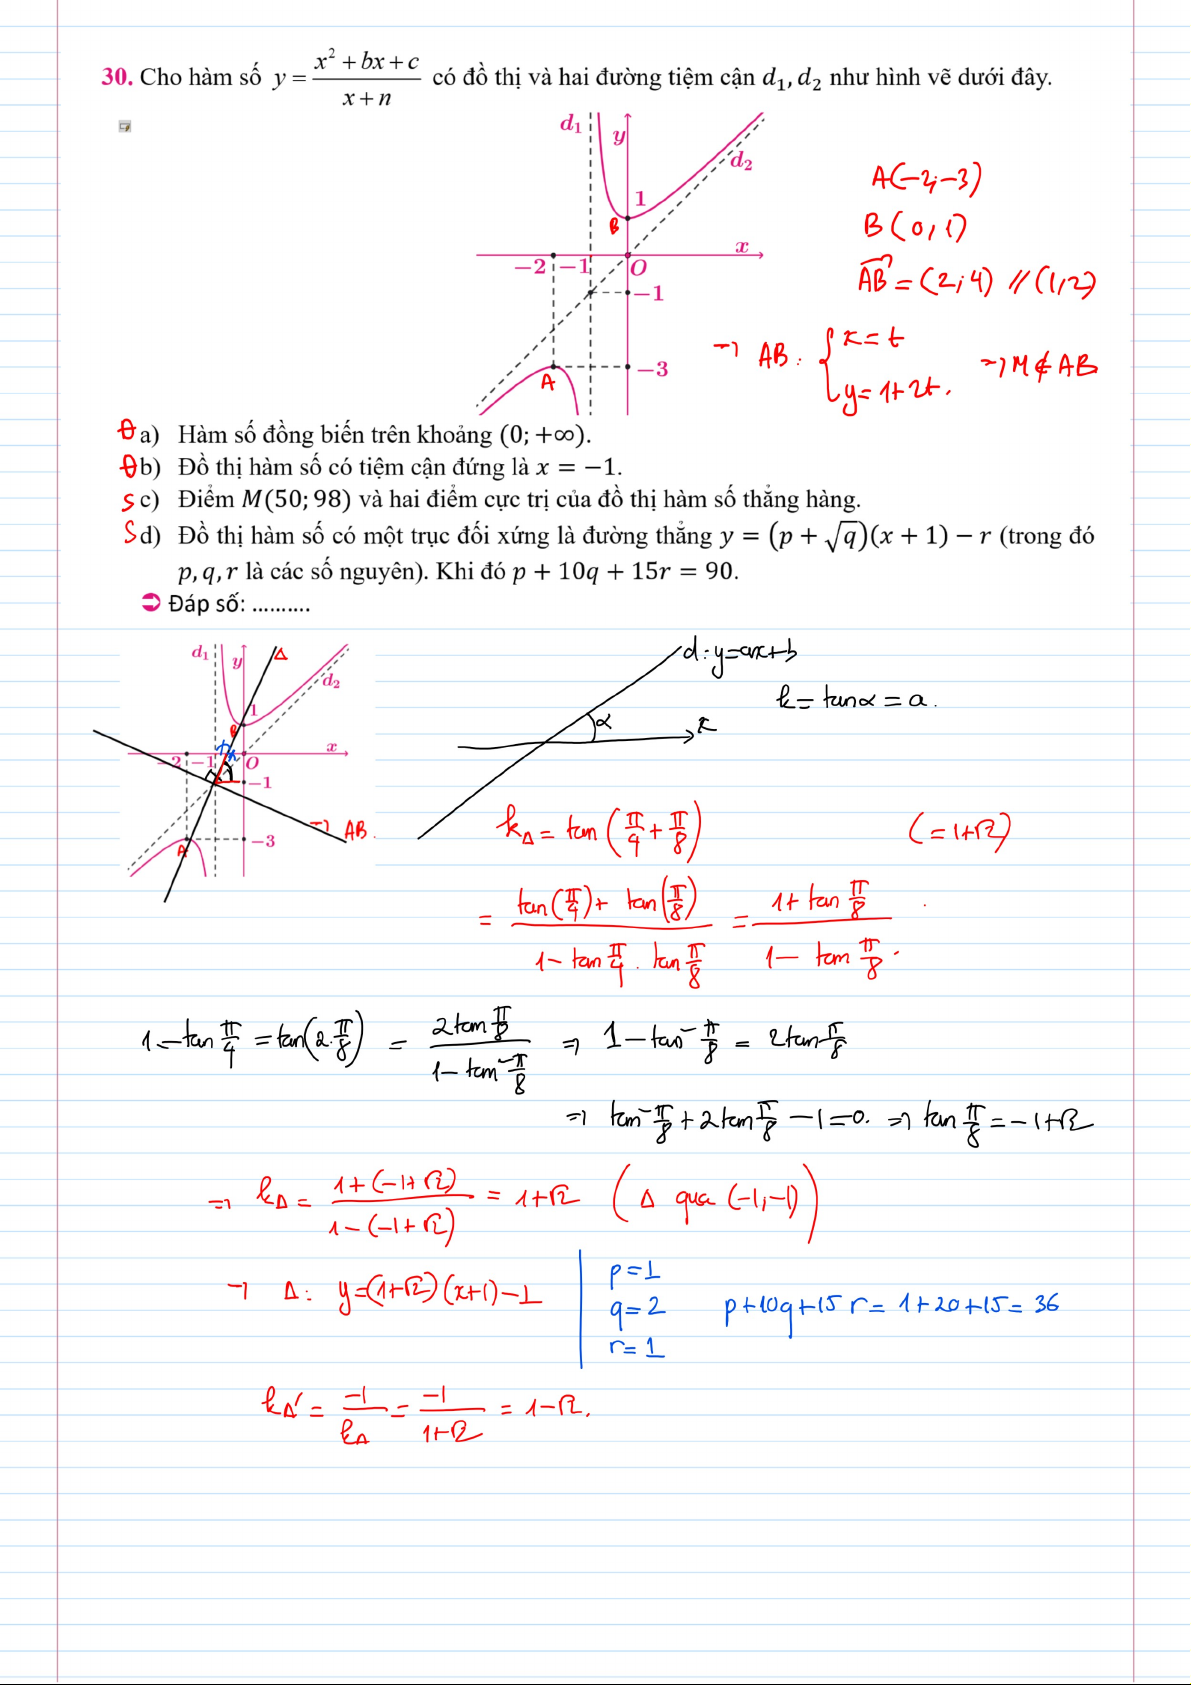 30. Cho hàm số y = (x² + bx + c)/(x + n) có đồ thị và hai đường tiệm cận d₁, d₂ như hình vẽ dưới đây.
d₁ y d₂
1
B
x
−2 −1 O
−1
−3
A
A(−2; −3)
B(0, 1)
AB = (2; 4) // (1, 2)
→ AB: { x = t
y = 1 + 2t.
→ M ∉ AB
Đ a) Hàm số đồng biến trên khoảng (0; +∞).
Đ b) Đồ thị hàm số có tiệm cận đứng là x = −1.
S c) Điểm M(50; 98) và hai điểm cực trị của đồ thị hàm số thẳng hàng.
S d) Đồ thị hàm số có một trục đối xứng là đường thẳng y = (p + √q)(x + 1) − r (trong đó
p, q, r là các số nguyên). Khi đó p + 10q + 15r = 90.
➲ Đáp số: ..........
d₁ y Δ
d₂
1
B
x
−2 −1 O
−1
→ AB.
−3
A
d: y=ax+b
k = tanα = a.
α x
k_Δ = tan(π/4 + π/8) (= 1+√2)
= (tan(π/4) + tan(π/8))/(1 − tan π/4 . tan π/8) = (1 + tan π/8)/(1 − tan π/8).
1 = tan π/4 = tan(2.π/8) = (2tan π/8)/(1 − tan² π/8) ⇒ 1 − tan² π/8 = 2tan π/8
⇒ tan² π/8 + 2tan π/8 − 1 = 0. ⇒ tan π/8 = −1+√2
⇒ k_Δ = (1 + (−1+√2))/(1 − (−1+√2)) = 1+√2 (Δ qua (−1; −1))
→ Δ: y = (1+√2)(x+1) − 1
p = 1
q = 2
r = 1
p + 10q + 15r = 1 + 20 + 15 = 36
k_Δ' = −1/k_Δ = −1/(1+√2) = 1−√2.